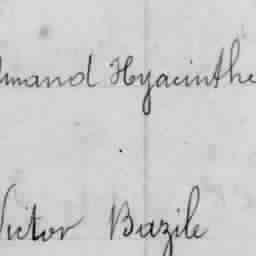 dmand Hyacinthe
Victor Bazile